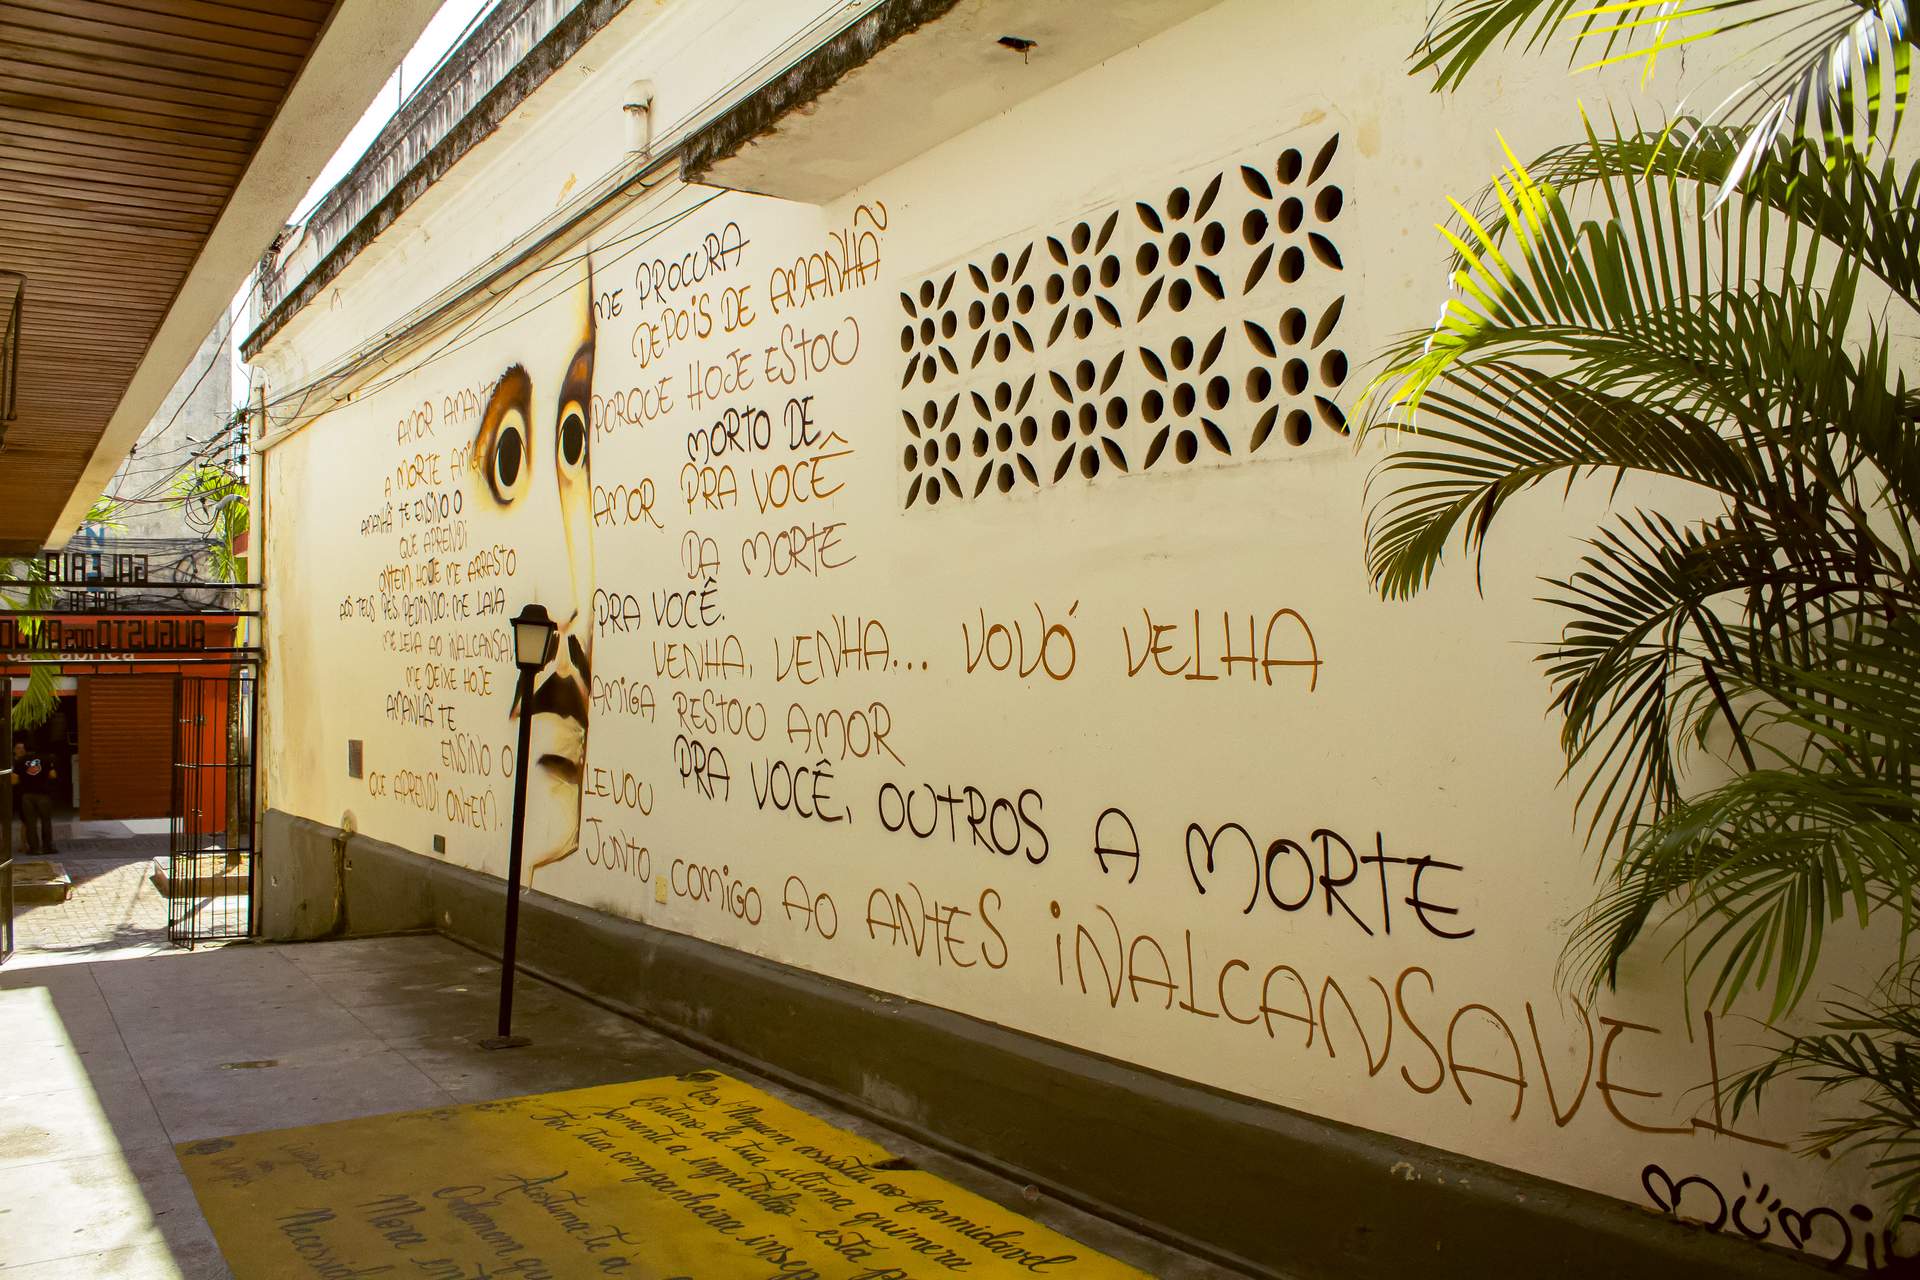 AMOR AMANTE
A MORTE AMIGA
AMANHÃ TE ENSINO O
QUE APRENDi
ONTEM, HOJE ME ARRASTO
AOS TEUS PÉS, PEDINDO: ME LAVA
ME LEVA AO iNALCANSAV
ME DEIXE HOJE
AMANHÃ TE
ENSINO O
QUE APRENDi ONTEM.
ME PROCURA
DEPOiS DE AMANHÃ
PORQUE HOJE ESTOU
MORTO DE
AMOR PRA VOCÊ
DA MORTE
PRA VOCÊ.
VENHA, VENHA... VOVÓ VELHA
AMiGA RESTOU AMOR
LEVOU PRA VOCÊ, OUTROS A MORTE
JUNTO COMiGO AO ANTES iNALCANSAVEL
GALERIA
AUGUSTO DOS ANJO
Vês! Ninguém assistiu ao formidável
Enterro de tua última quimera
Somente a ingratidão - esta
Foi tua companheira insep
Acostuma-te à
O homem, qu
Mora en
Necessid